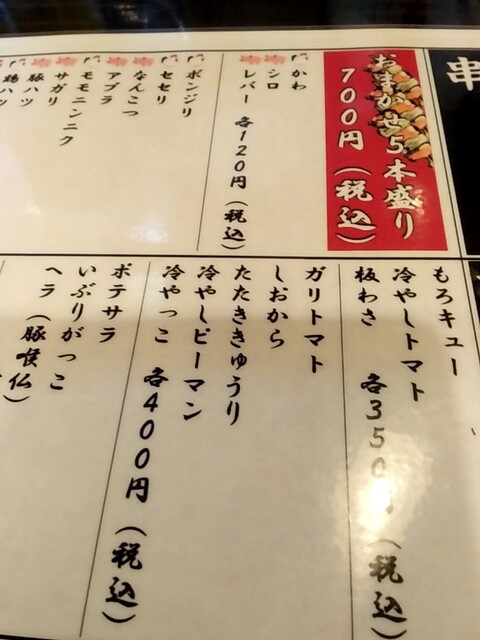 串
おまかせ5本盛り
700円(税込)
かわ
シロ
レバー 各120円(税込)
ボンジリ
セセリ
なんこつ
アブラ
モモニンニク
サガリ
豚ハツ
鶏ハツ
もろキュー
冷やしトマト
板わさ 各350円(税込)
ガリトマト
しおから
たたききゅうり
冷やしピーマン
冷やっこ 各400円(税込)
ポテサラ
いぶりがっこ
ヘラ(豚喉仏)